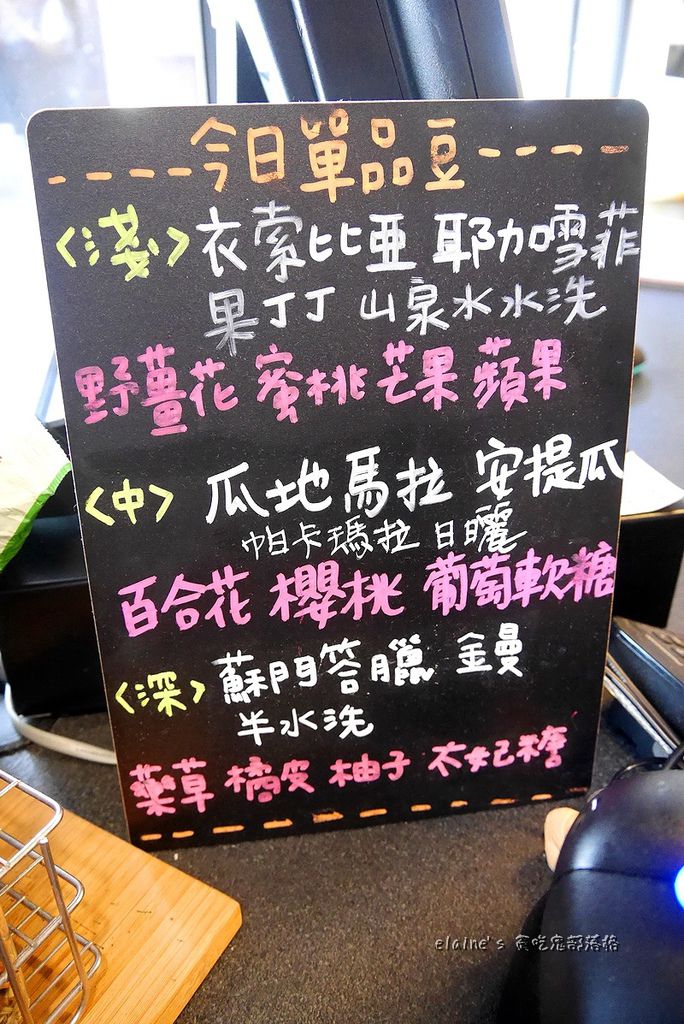 ----今日單品豆----
<淺> 衣索比亞 耶加雪菲
果丁丁 山泉水水洗
野薑花 蜜桃 芒果 蘋果
<中> 瓜地馬拉 安提瓜
帕卡瑪拉 日曬
百合花 櫻桃 葡萄軟糖
<深> 蘇門答臘 金曼
半水洗
藥草 橘皮 柚子 太妃糖
elaine's 貪吃鬼部落格